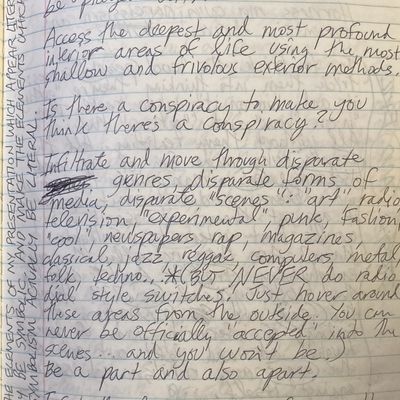 be
Access the deepest and most profound
interior areas of life using the most
shallow and frivolous exterior methods.
Is there a conspiracy to make you
think there's a conspiracy?
Infiltrate and move through disparate
genres, disparate forms of
media, disparate "scenes": "art" radio
television, "experimental" punk, fashion,
"cool", newspapers, rap, magazines,
classical, jazz, reggae, computers, metal,
folk, techno... *(BUT NEVER do radio
dial style switches. Just hover around
these areas from the outside. You can
never be officially "accepted" into the
scenes... and you won't be.)
Be a part and also apart.
ELEMENTS OF PRESENTATION WHICH APPEAR
BE SYMBOLIC AND MAKE THE ELEMENTS WHICH
SYMBOLISM ACTUALLY BE LITERAL.